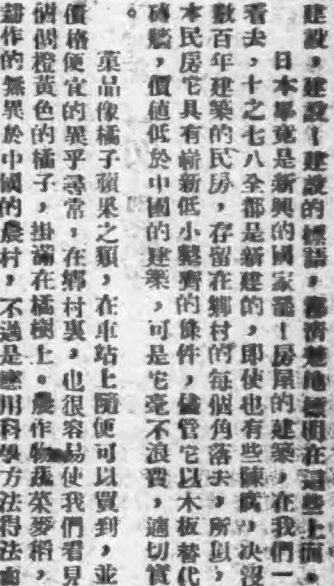 建設，建設！建設的標語，
明在這些上面。
日本畢竟是新興的國家！房屋的建築，在我們一
看去，十之七八全都是新建的，即使也有些陳廣，決沒
數百年建築的民房，存留在鄉村的每個角落去，所以，
本民房它具有嶄新低小整齊的條件，儘管它以木板替代
磚牆，價值低於中國的建築，可是它毫不浪費，適切實
菓品像橘子蘋果之類，在車站上隨便可以買到，並
價格便宜的異乎尋常，在鄉村裏，也很容易使我們看見
個個橙黃色的橘子，掛滿在橘樹上。農作物蔬菜麥稻，
耕作的無異於中國的農村，不過是應用科學方法得法